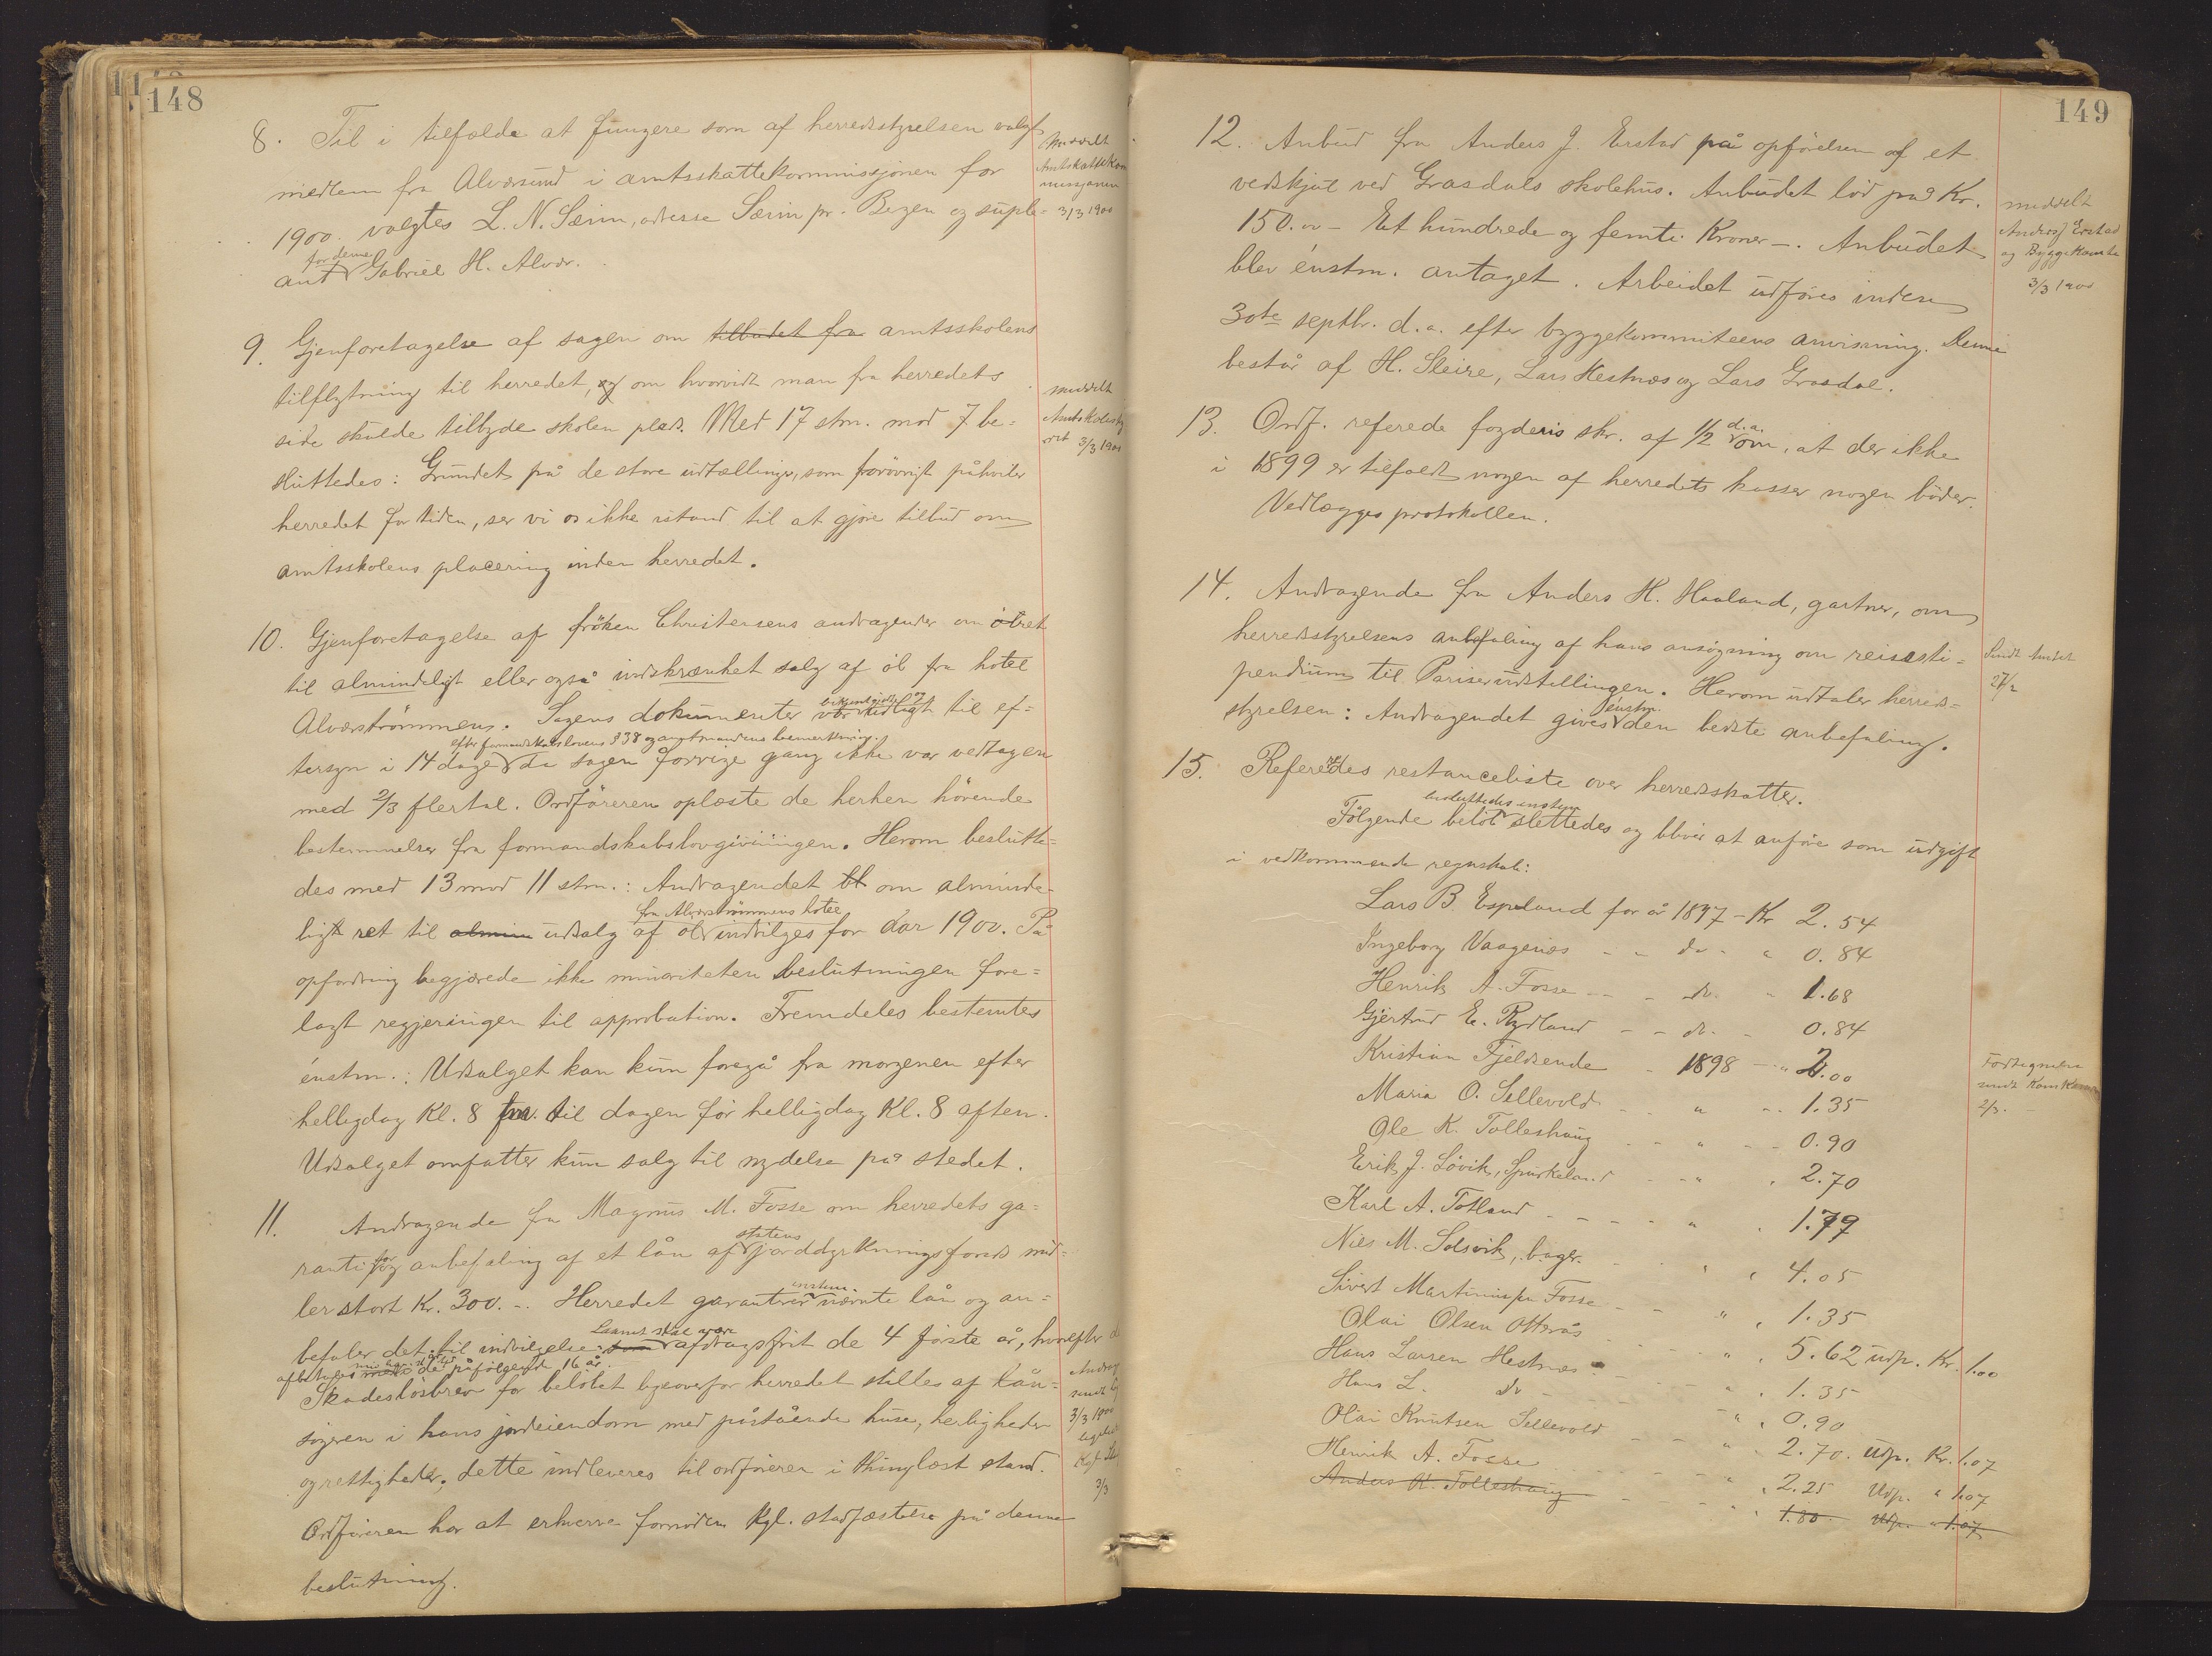 148
8. Til i tilfælde at fungere som af herredsstyrelsen valgt
medlem fra Alversund i amtsskattekommissjonen for
1900. valgtes L. N. Sæim, adresse Sæim pr. Bergen og suple=
ant for denne Gabriel H. Alver.
Meddelt
Amtskattekom
missjonen
3/3 1900
9. Gjenforetagelse af sagen om tilbudet fra amtsskolens
tilflytning til herredet, og om hvorvidt man fra herredets
side skulde tilbyde skolen plads. Med 17 stm. mod 7 be=
sluttedes: Grundet på de store udtællinger, som forövrigt påhviler
herredet for tiden, ser vi os ikke istand til at gjöre tilbud om
amtsskolens placering inden herredet.
meddelt
Amtskolesty
ret 3/3 1900
10. Gjenforetagelse af fröken Christensens andragender om ölret
til almindeligt eller også indskrænket salg af öl fra hotel
Alverströmmen. Sagens dokumenter var bekjendtgjort udlagt til ef=
tersyn i 14 dage efter formandskabslovens § 38 og amtmandens bemerkning. da sagen forrige gang ikke var vedtagen
med 2/3 flertal. Ordföreren oplæste de herhen hörende
bestemmelser fra formandskabslovgivningen. Herom beslutte=
des med 13 mod 11 stm.: Andragendet bl om alminde-
ligt ret til almin udsalg af öl fra Alverströmmens hotel indvilges for året 1900. På
opfordring begjærede ikke minoriteten beslutningen fore=
lagt regjeringen til approbation. Fremdeles bestemtes
énstm.: Udsalget kan kun foregå fra morgenen efter
helligdag Kl. 8 fm. til dagen för helligdag Kl. 8 aften.
Udsalget omfatter kun salg til nydelse på stedet.
11. Andragende fra Magnus M. Fosse om herredets ga=
ranti for og anbefaling af et lån af statens jorddyrkningsfonds mid=
ler stort Kr. 300.-. Herredet garanterer enstem. nævnte lån og an=
befaler det til indvilgelse. Laanet skal være som afdragsfrit de 4 förste år, hvorefter d
afbetales med de påfölgende 16 år.
Skadeslösbrev for belöbet ligeoverfor herredet stilles af lån=
sögeren i hans jordeiendom med påstående huse, herligheder
og rettigheder, dette indleveres til ordföreren i thinglæst stand.
Ordföreren har at erhverve fornöden Kgl. stadfæstelse på denne
beslutning.
Andrag
sendt
3/3 1900
3/3
149
12. Anbud fra Anders J. Erstad på opförelsen af et
vedskjul ved Grasdals skolehus. Anbudet löd på Kr.
150.00 - Et hundrede og femti Kroner -. Anbudet
blev énstm. antaget. Arbeidet udföres inden
30te septbr. d.a. efter byggekommiteens anvisning. Denne
består af H. Sleire, Lars Hestnæs og Lars Grasdal.
meddelt
Anders J Erstad
og Byggekomite
3/3 1900
13. Ordf. referede fogderis skr. af 1/2 d.a. om, at der ikke
i 1899 er tilfaldt nogen af herredets kasser nogen böder.
Vedlægges protokollen.
14. Andragende fra Anders H. Haaland, gartner, om
herredsstyrelsens anbefaling af hans ansögning om reisesti=
pendium til Pariserudstillingen. Herom udtaler herreds=
styrelsen: Andragendet gives énstm. den bedste anbefaling.
Sendt Amtet
27/2
15. Referedes restanceliste over herredsskatter.
Fölgende belöb besluttedes enstem slettedes og bliver at anföre som udgift
i vedkommende regnskab:
Lars B Espeland for år 1897 - Kr 2.54
Ingeborg Vaagenes - - do - " 0.84
Henrik A. Fosse - - - do. - 1.68
Gjertrud E. Rydland - - do. - 0.84
Kristian Fjeldsende - 1898 - " 2.00
Maria O. Sellevold - - " - - 1.35
Ole K. Tolleshaug - - " - - 0.90
Erik J. Lövik, Spurkeland - - " " 2.70
Karl A. Totland - - - - " " 1.79
Nils M. Solsvik, bager - " " 4.05
Sivert Martinusen Fosse - - " " 1.35
Olai Olsen Otterås - - " " 5.62 udp. Kr. 1.00
Hans Larsen Hestnes - - - " " 1.35
Hans L. do - - " " 0.90
Olai Knutsen Sellevold - - " 2.70. Udp. Kr. 1.07
Henrik A. Fosse - - - - " " 2.25 Udp. " 1.07
Anders K. Tolleshaug - - - " " 1.80 Udp. " 1.07
Fortegnelse
sendt Kemner
2/3. -